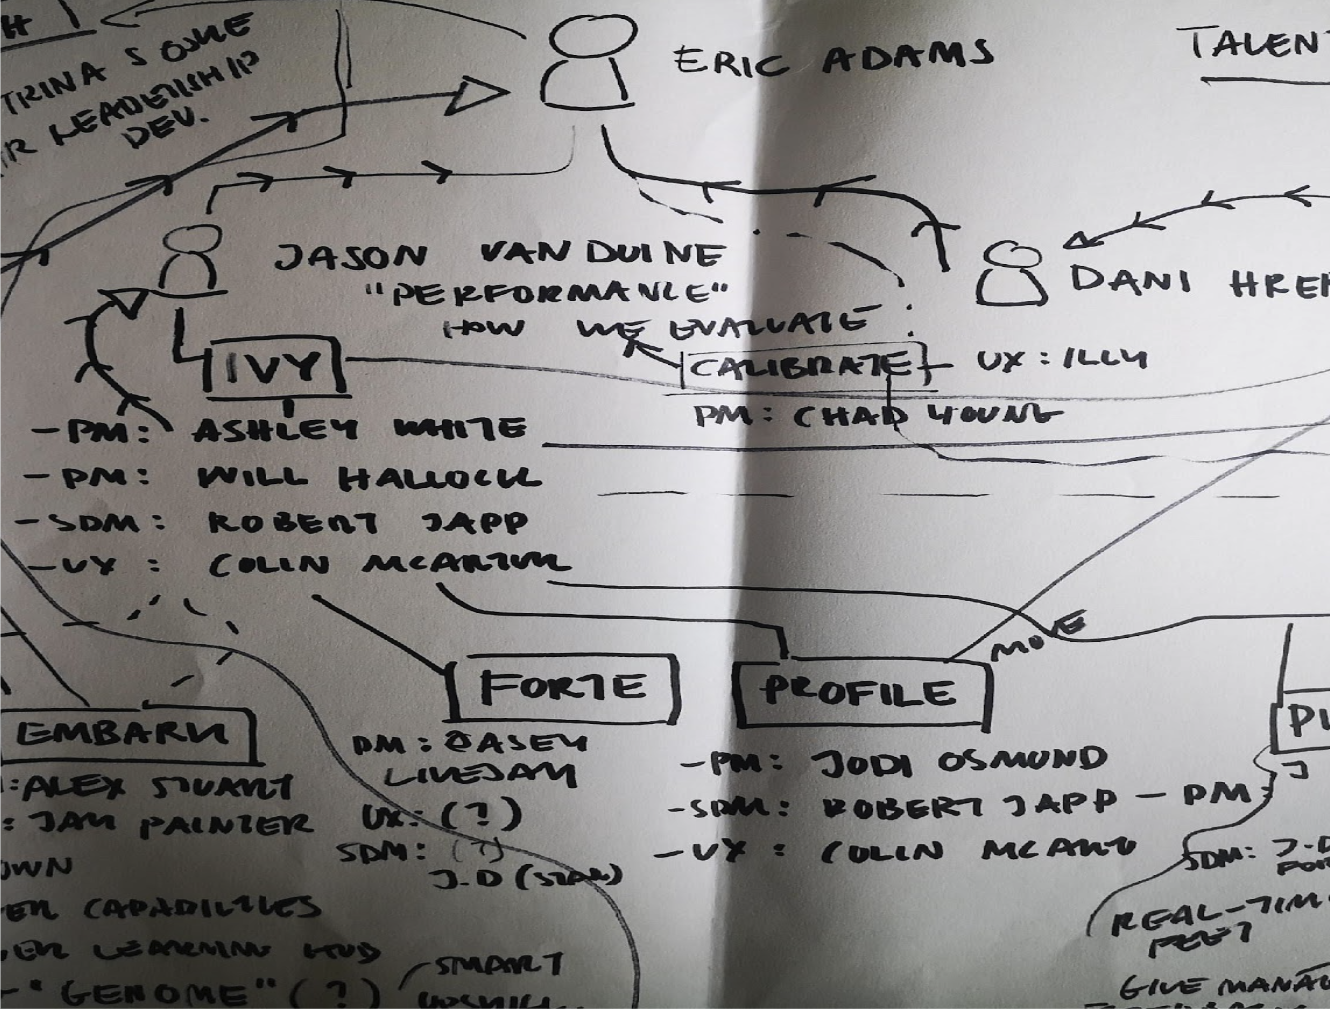 TRINA SOME
LEADERSHIP
DEV.
ERIC ADAMS
TALEN
JASON VAN DUINE
"PERFORMANCE"
HOW WE EVALUATE
DANI HREN
IVY
CALIBRATE
UX: ILLY
PM: CHAD YOUNG
-PM: ASHLEY WHITE
-PM: WILL HALLOCK
-SDM: ROBERT JAPP
-UX: COLIN MCARTUR
MOVE
EMBARK
FORTE
PROFILE
PU
:ALEX STUART
: JAY PAINTER
OWN
ER CAPABILITIES
ER LEARNING HUB
- "GENOME" (?)
SMART
PM: CASEY
LIVEJAY
UX: (?)
SDM: (?)
J.D (STAR)
-PM: JODI OSMUND
-SDM: ROBERT JAPP
-UX: COLIN MCART
- PM:
J
SDM: J-D
REAL-TIM
GIVE MANA